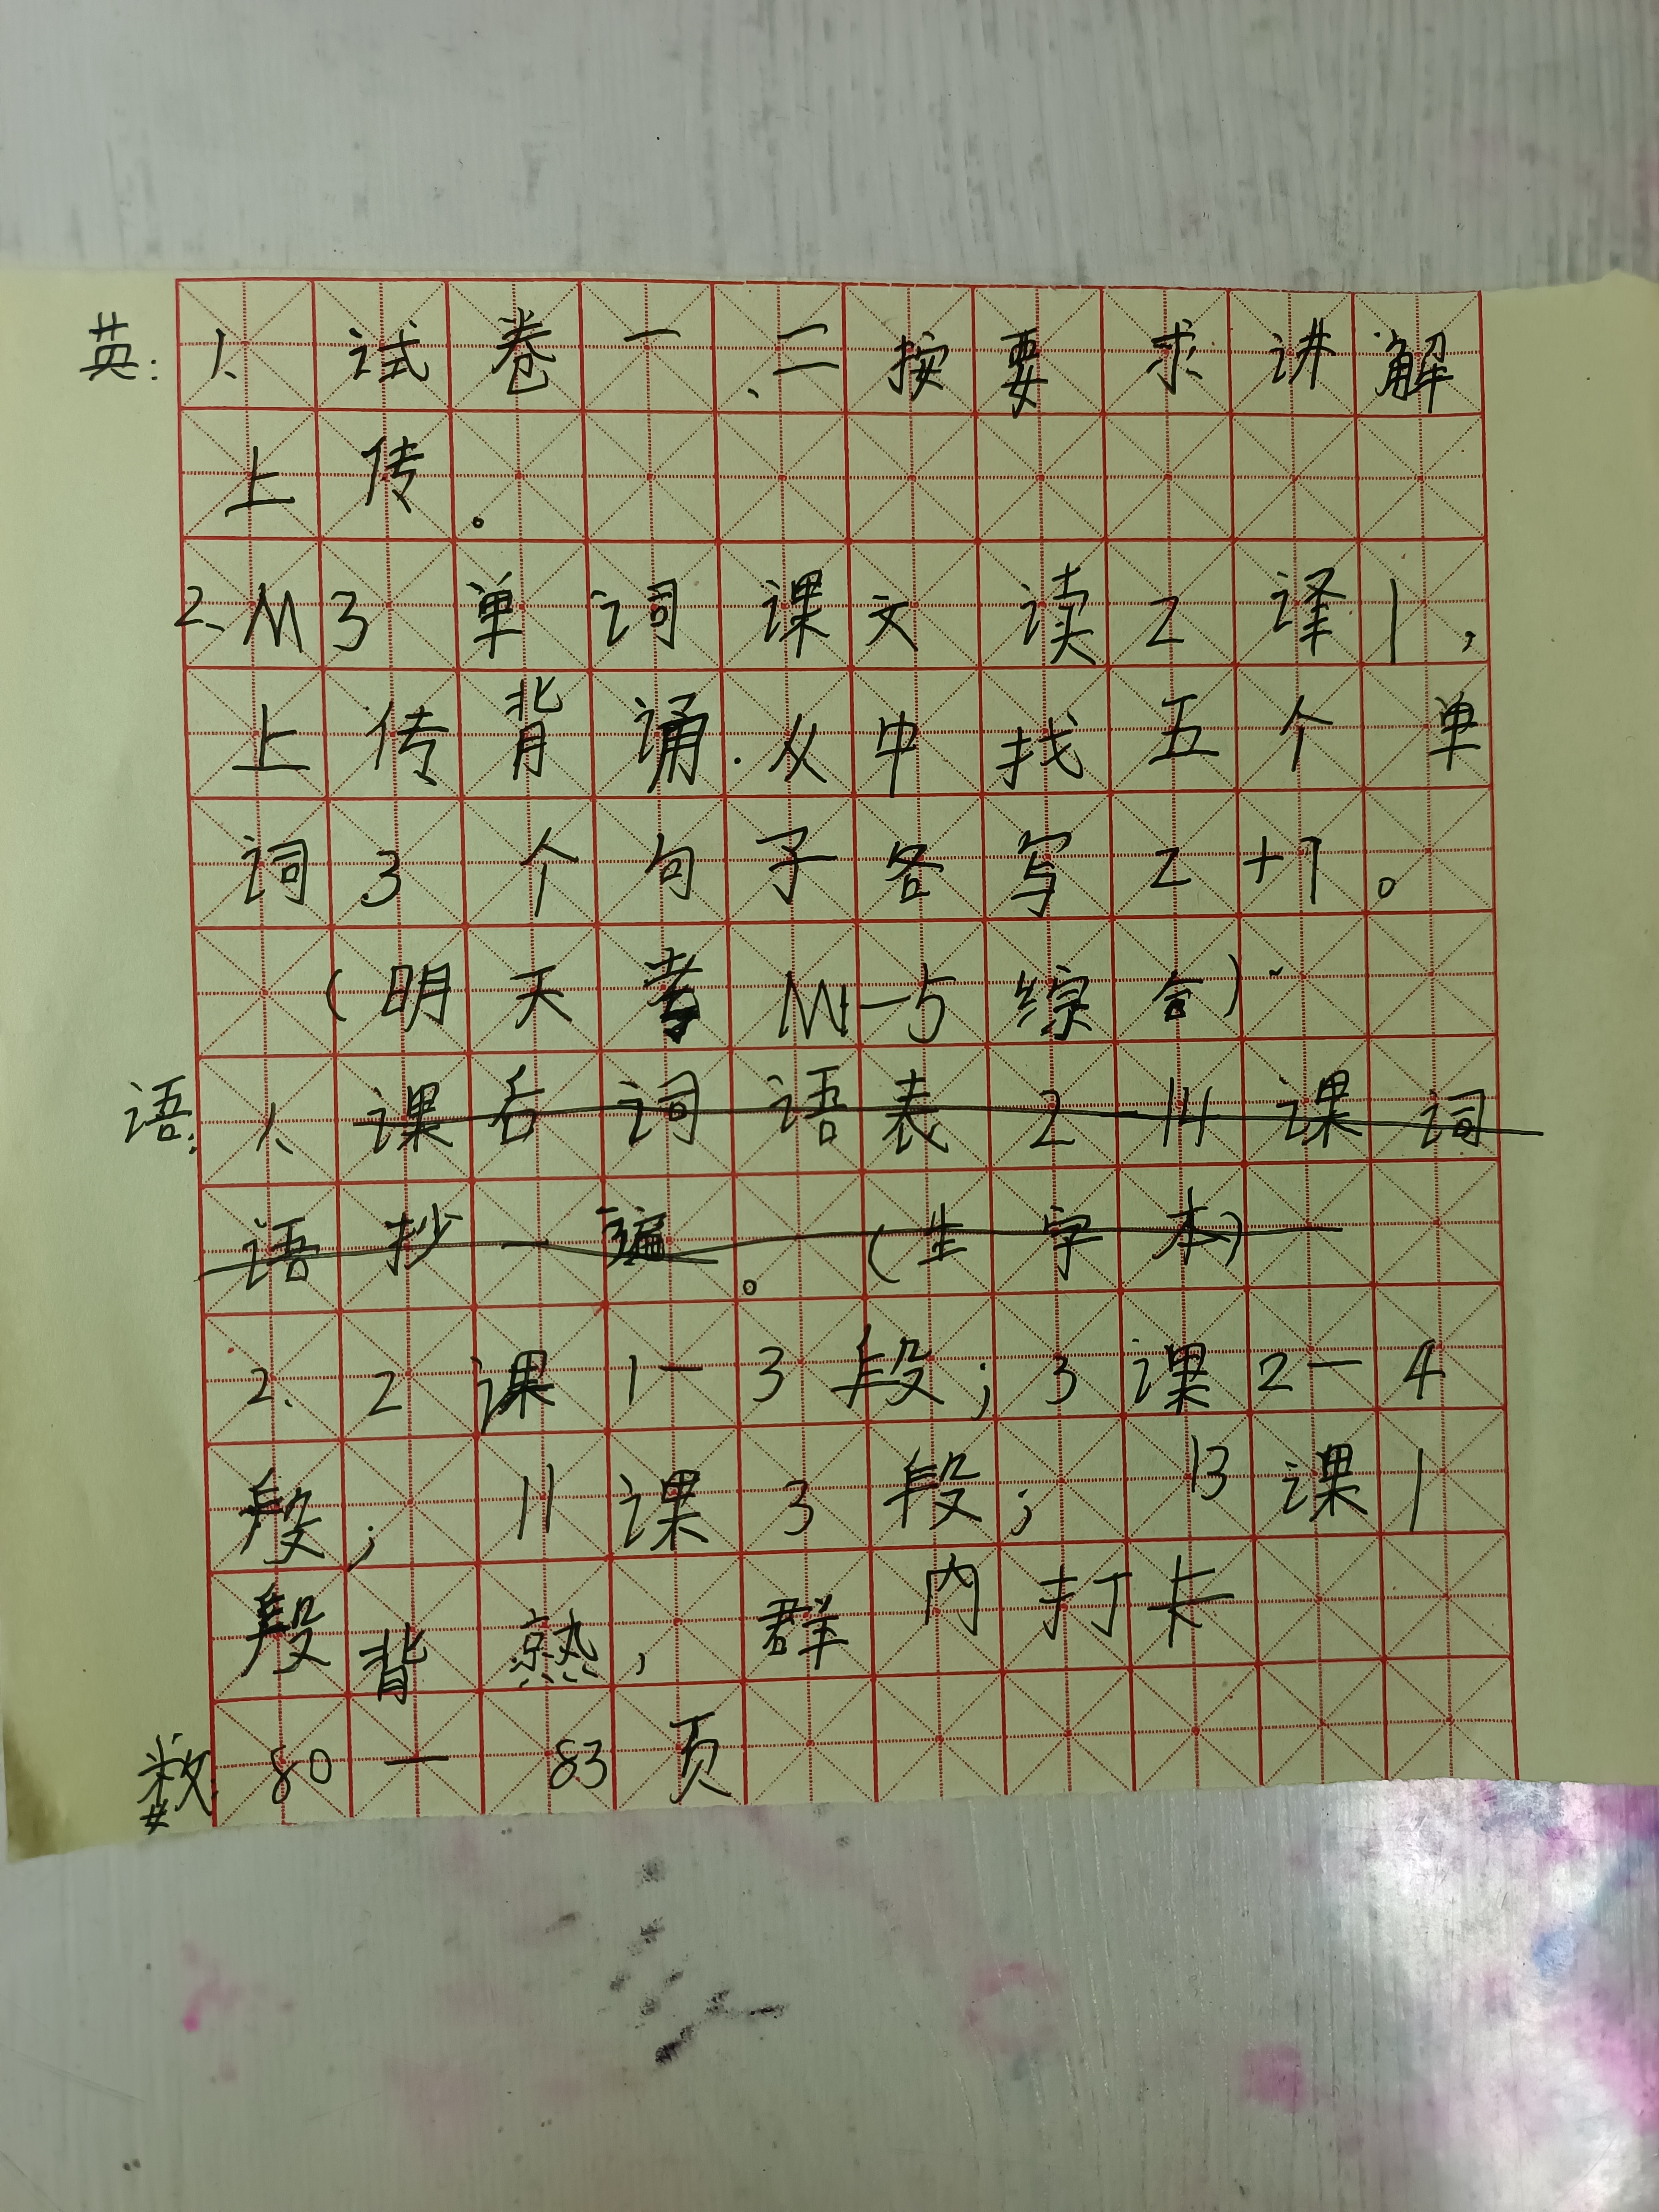 英: 1、试卷一、二按要求讲解
上传。
2、M3单词课文读2译1,
上传背诵.从中找五个单
词3个句子各写2+1。
(明天考M1-5综合)
语: 1、课后词语表2-14课词
语抄一遍。(生字本)
2、2课1-3段;3课2-4
段; 11课3段; 13课1
段背熟, 群内打卡
数: 80-83页